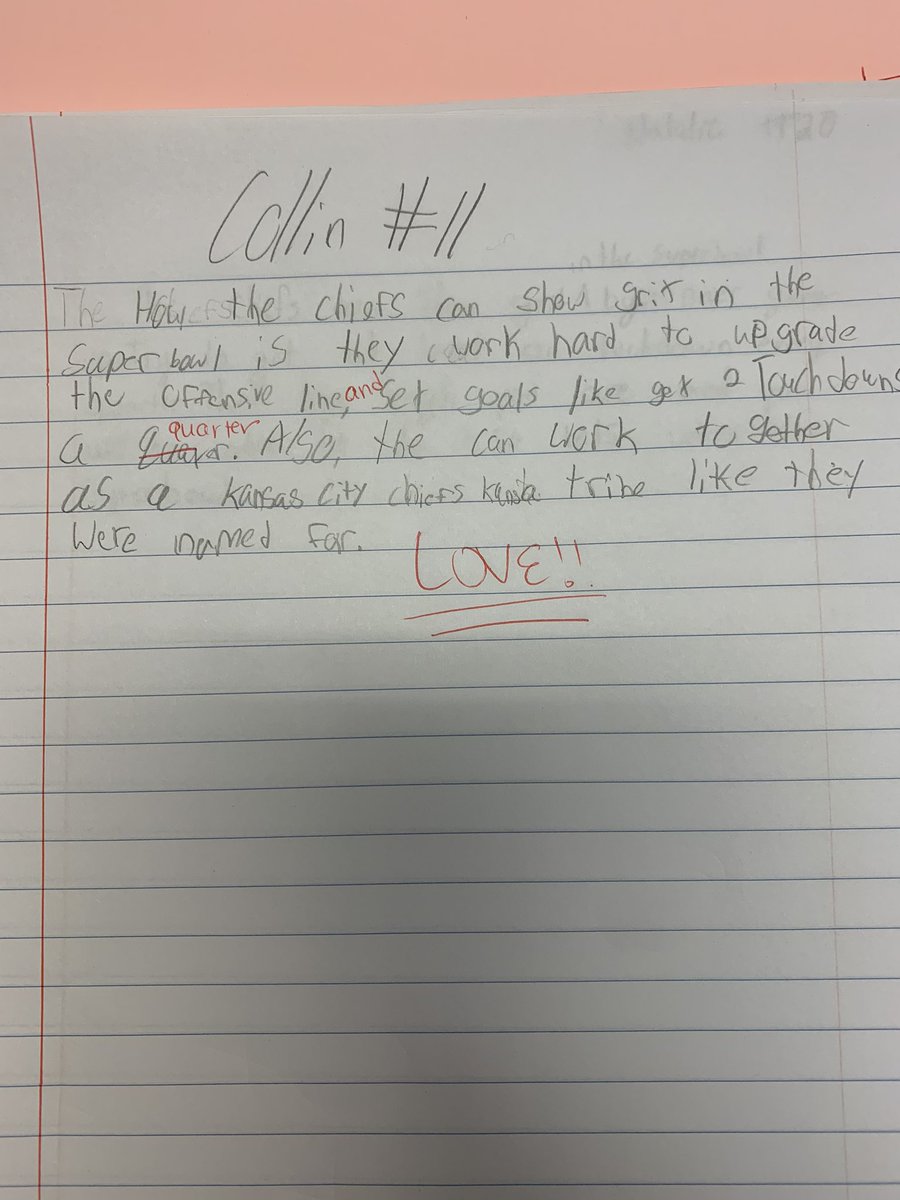 Collin #11
The How the chiefs can show grit in the
Super bowl is they work hard to upgrade
the offensive line, and set goals like get 2 Touchdowns
a quarter. Also, the can work together
as a Kansas City chiefs tribe like they
were named for.
LOVE!!